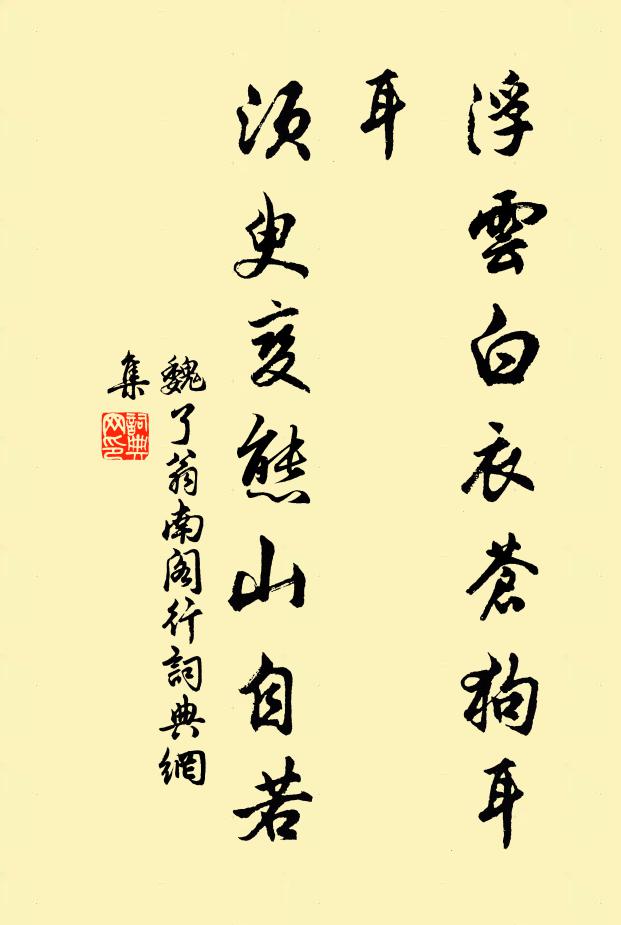 浮雲白衣蒼狗耳
耳
須臾變態山自若
魏了翁南阁行詞典網
集
詞典
网印